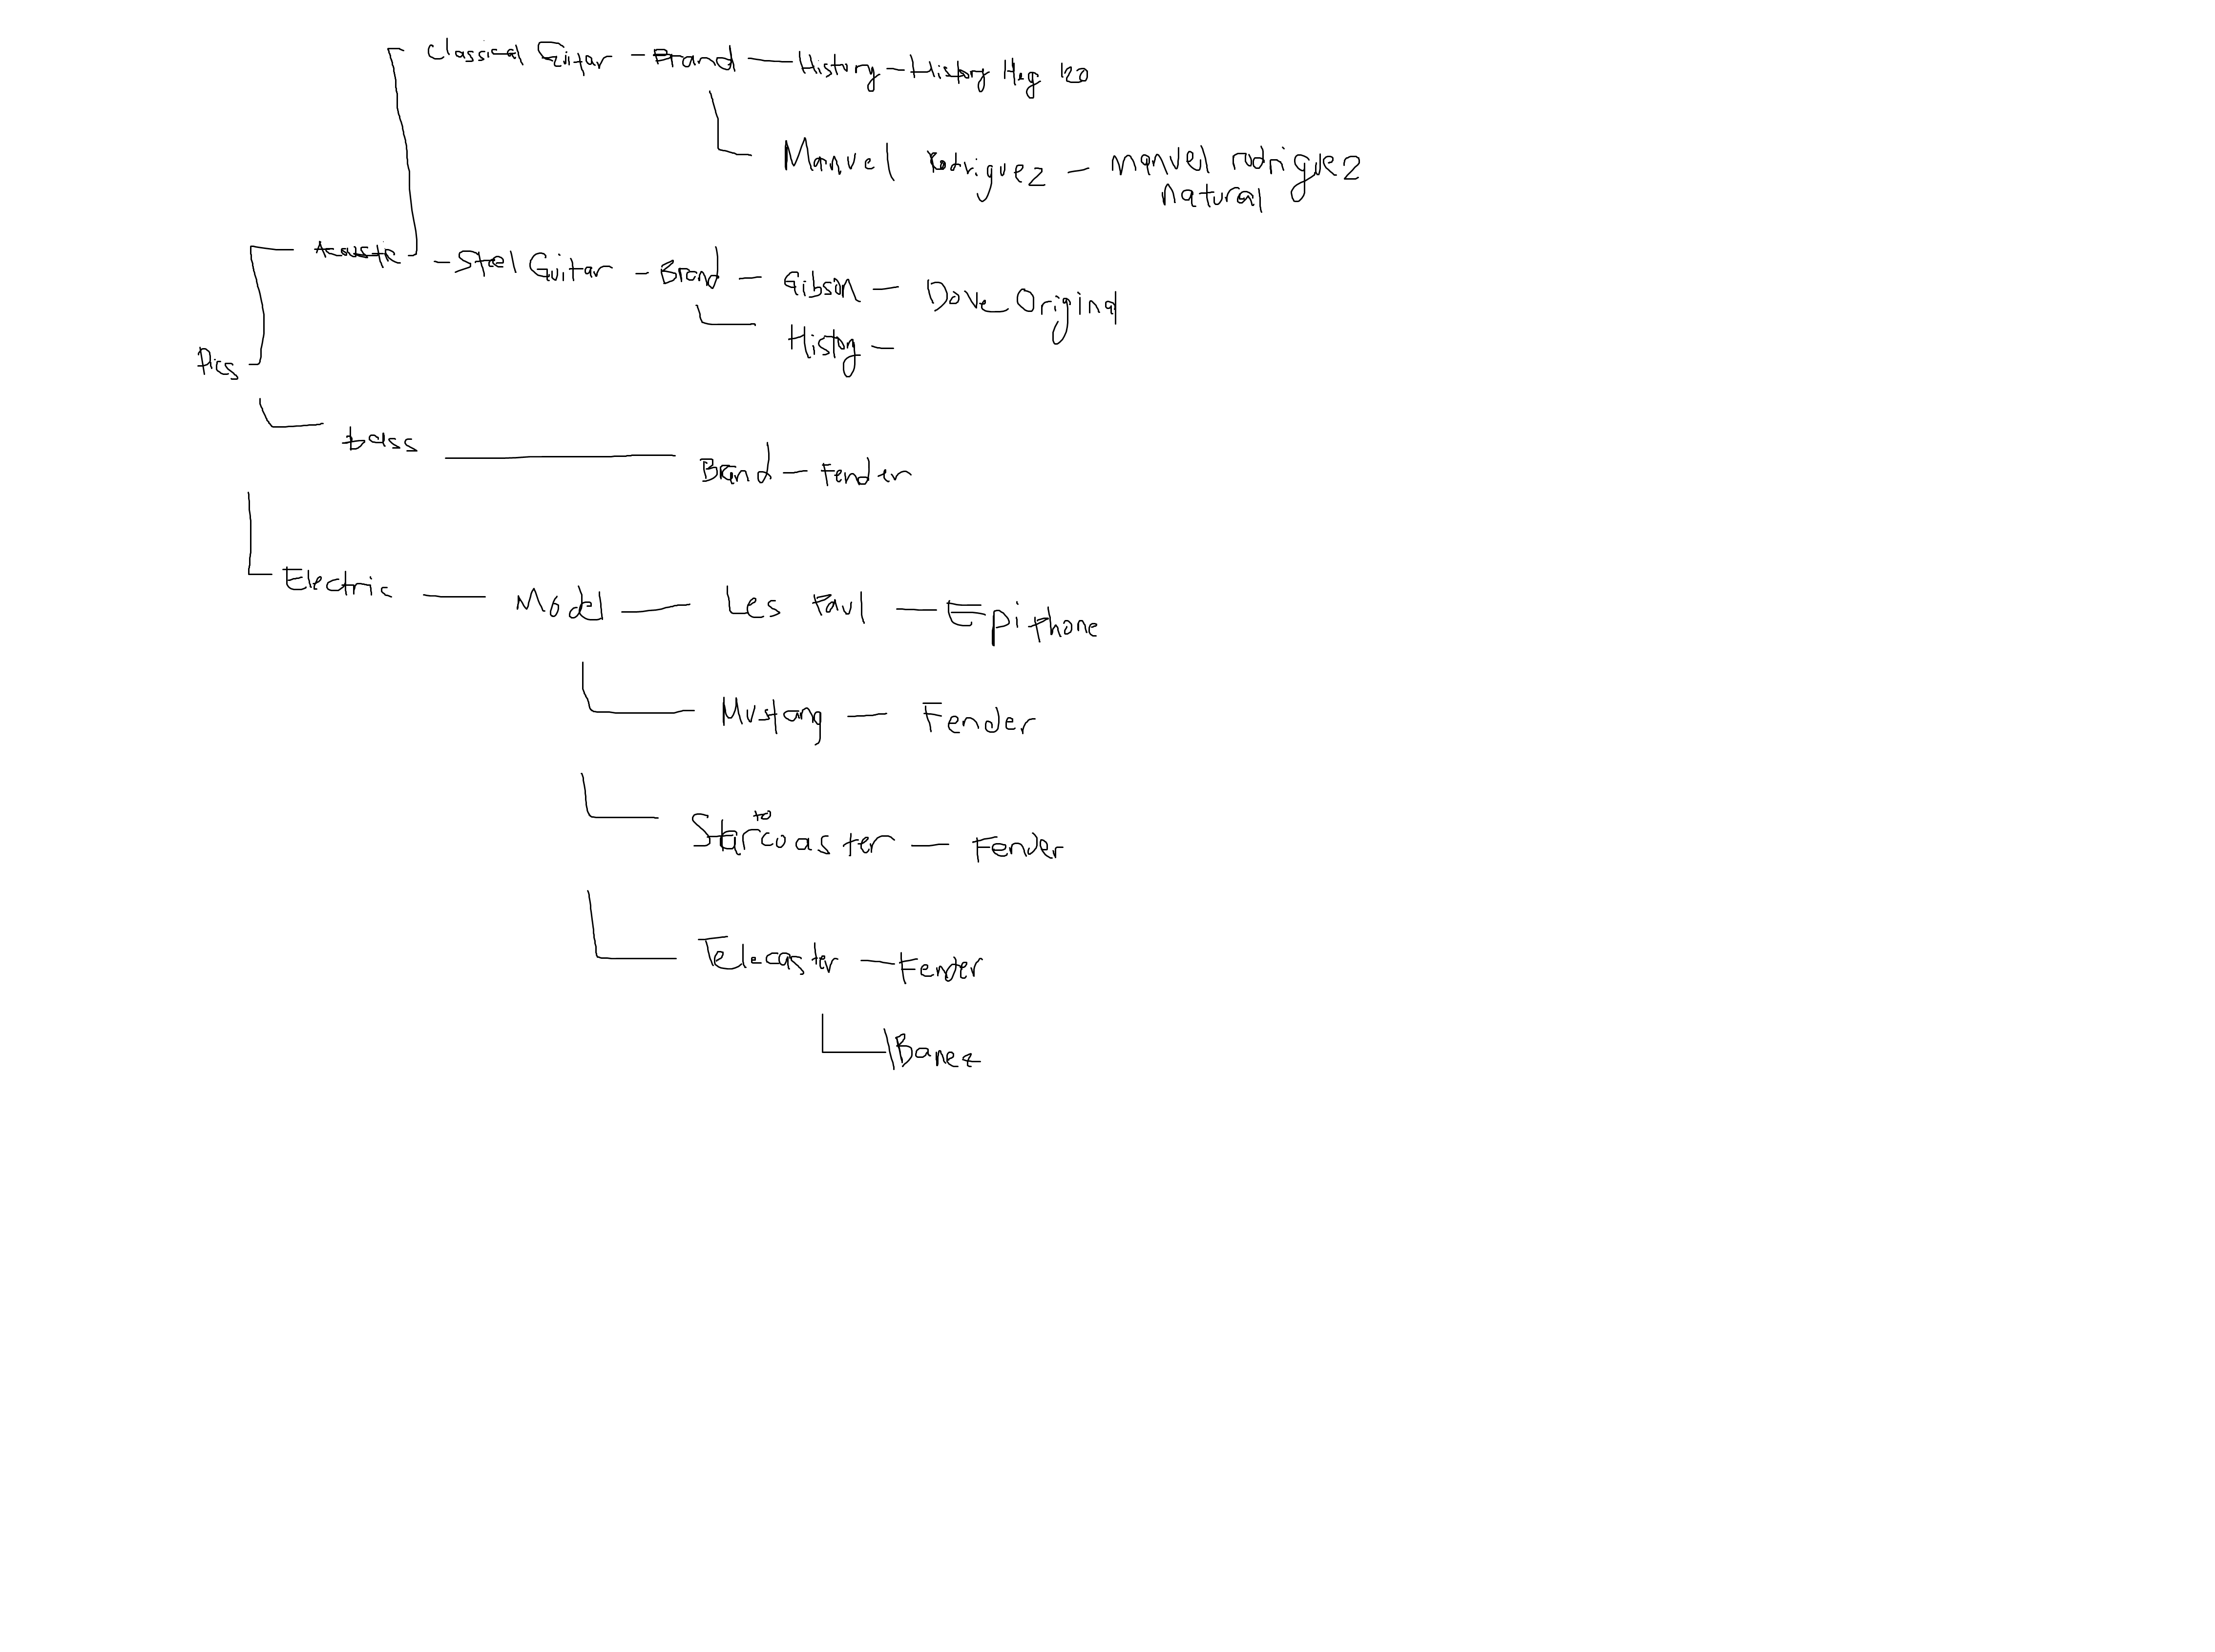 Classical Guitar - Brand - History - History Heg 120
Manuel Rodriguez - manuel rodriguez
natural
Acoustic - Steel Guitar - Brand - Gibson - Dove Original
History -
Pics
bass - Brand - Fender
Electric - Model - Les Paul - Epiphone
Mustang - Fender
to
Starcoaster - Fender
Telecaster - Fender
IBanez